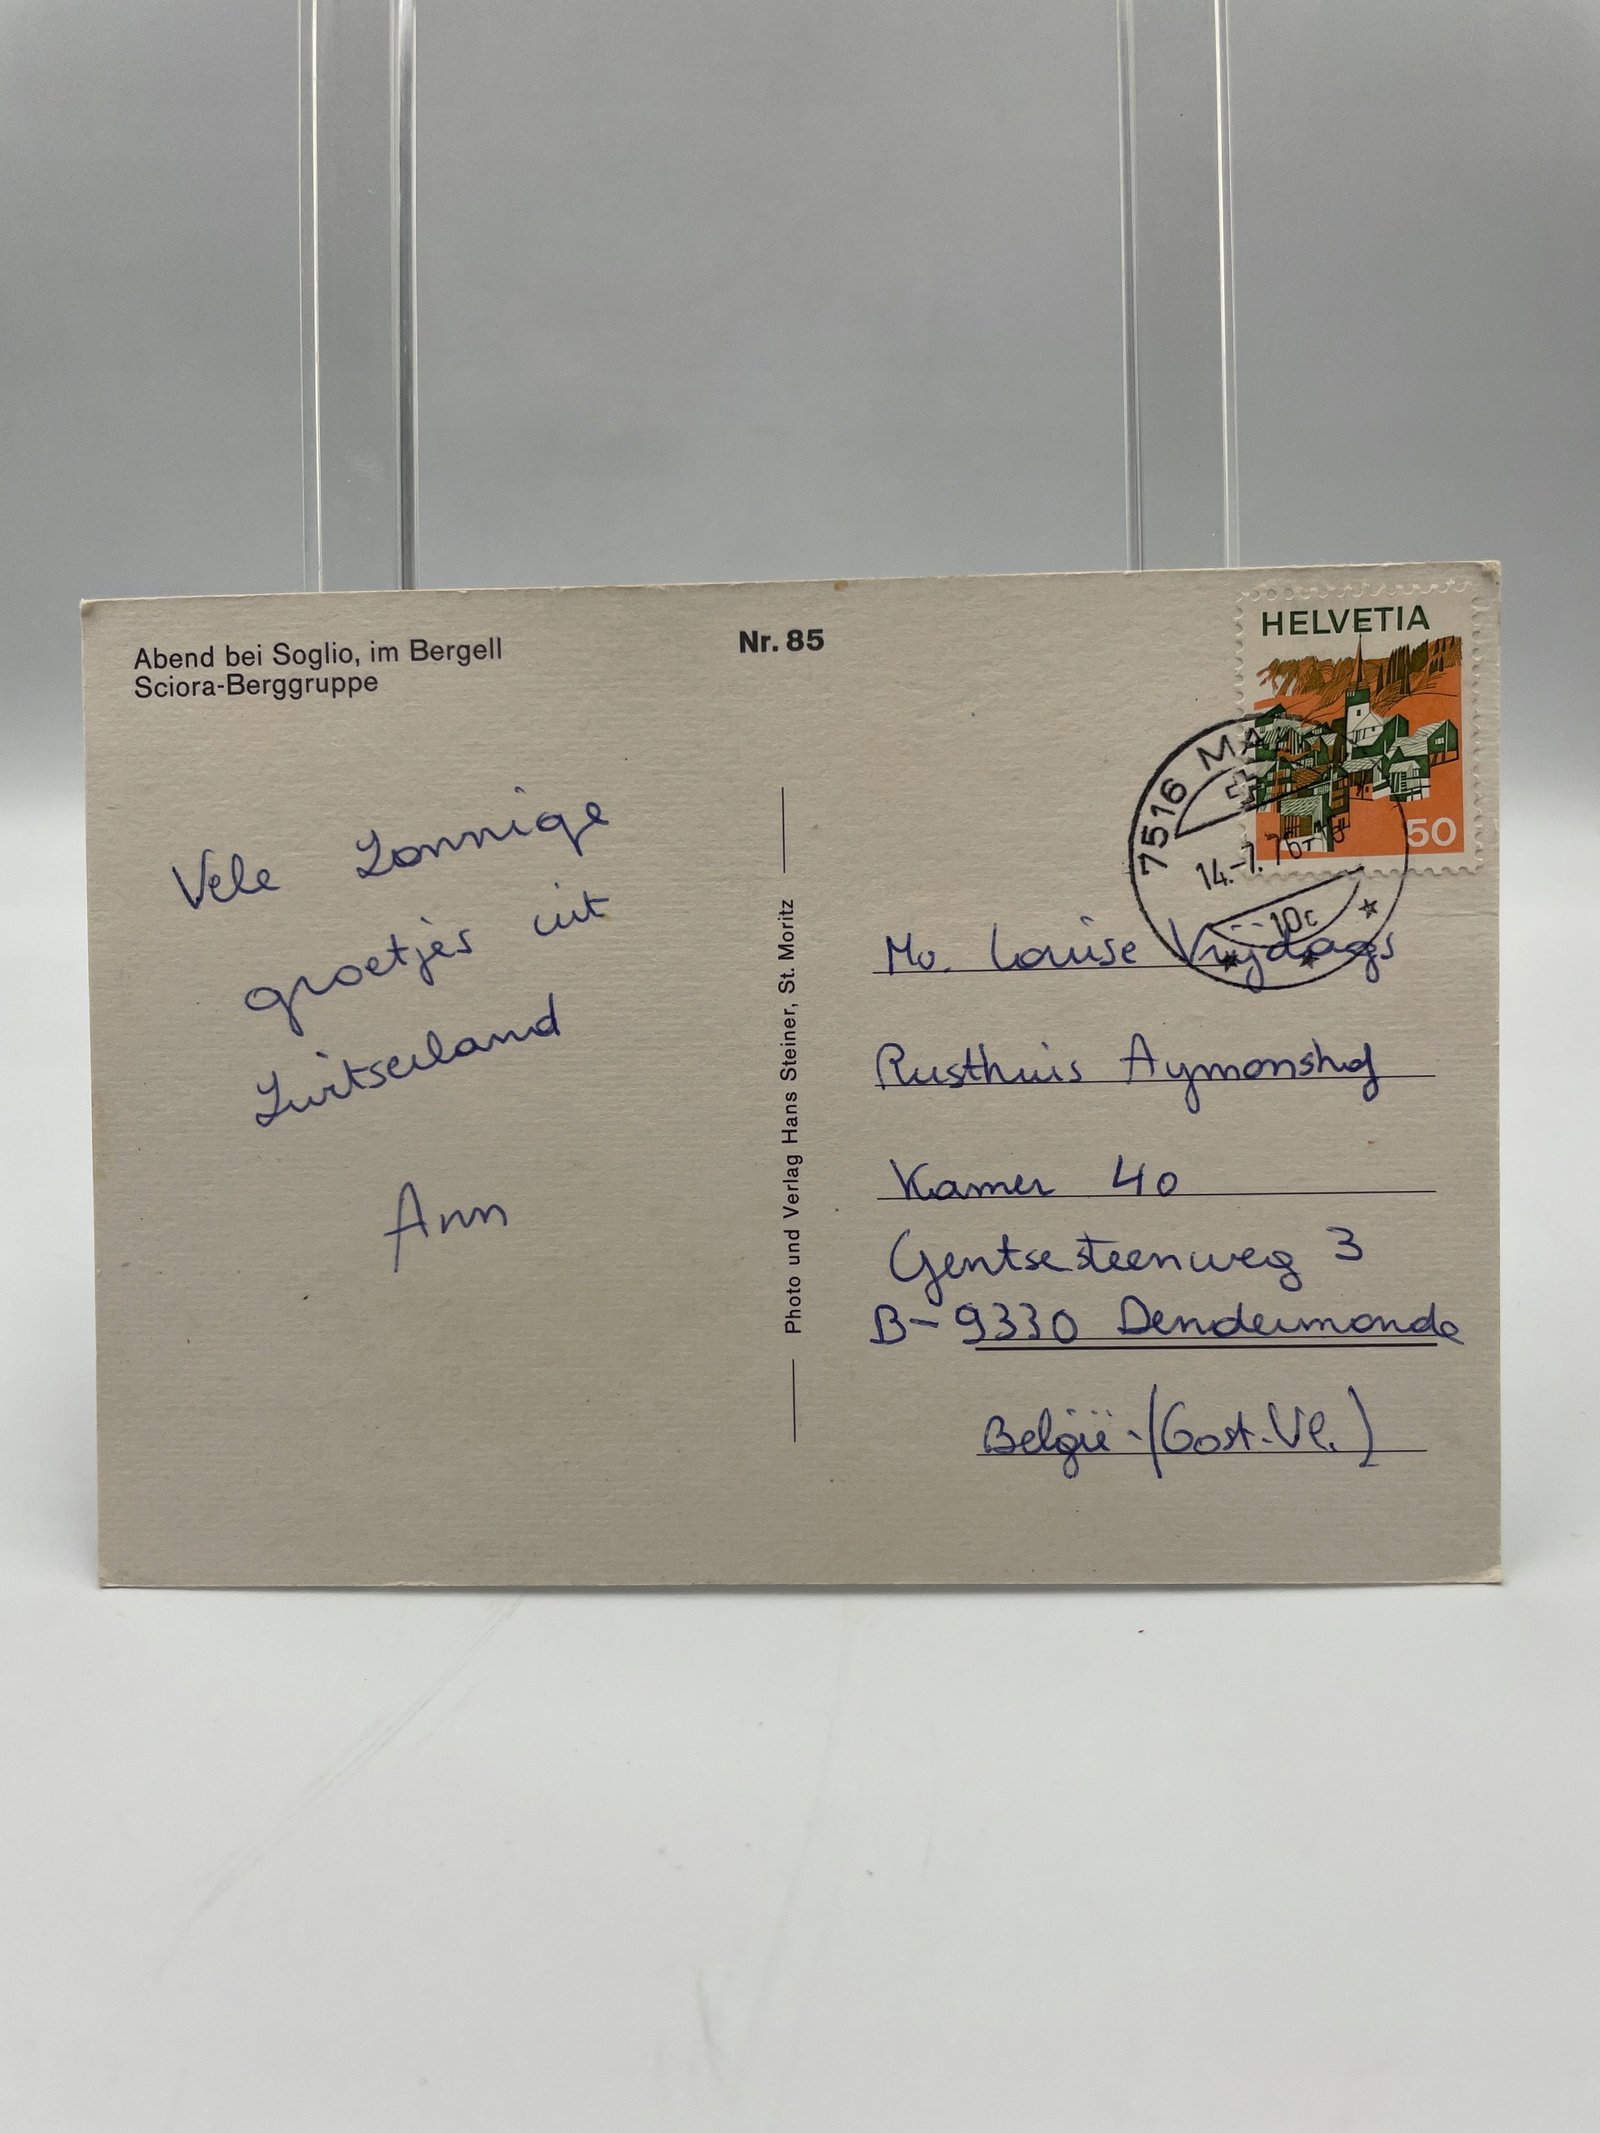 Abend bei Soglio, im Bergell
Sciora-Berggruppe
Nr. 85
HELVETIA
50
7516 MA
14.-7.76
10c
Vele Zonnige
groetjes uit
Zwitserland
Ann
Photo und Verlag Hans Steiner, St. Moritz
Louise Vrijdags
Rusthuis Aymonshof
Kamer 40
Gentsesteenweg 3
B-9330 Dendermonde
België-(Oost-Vl.)